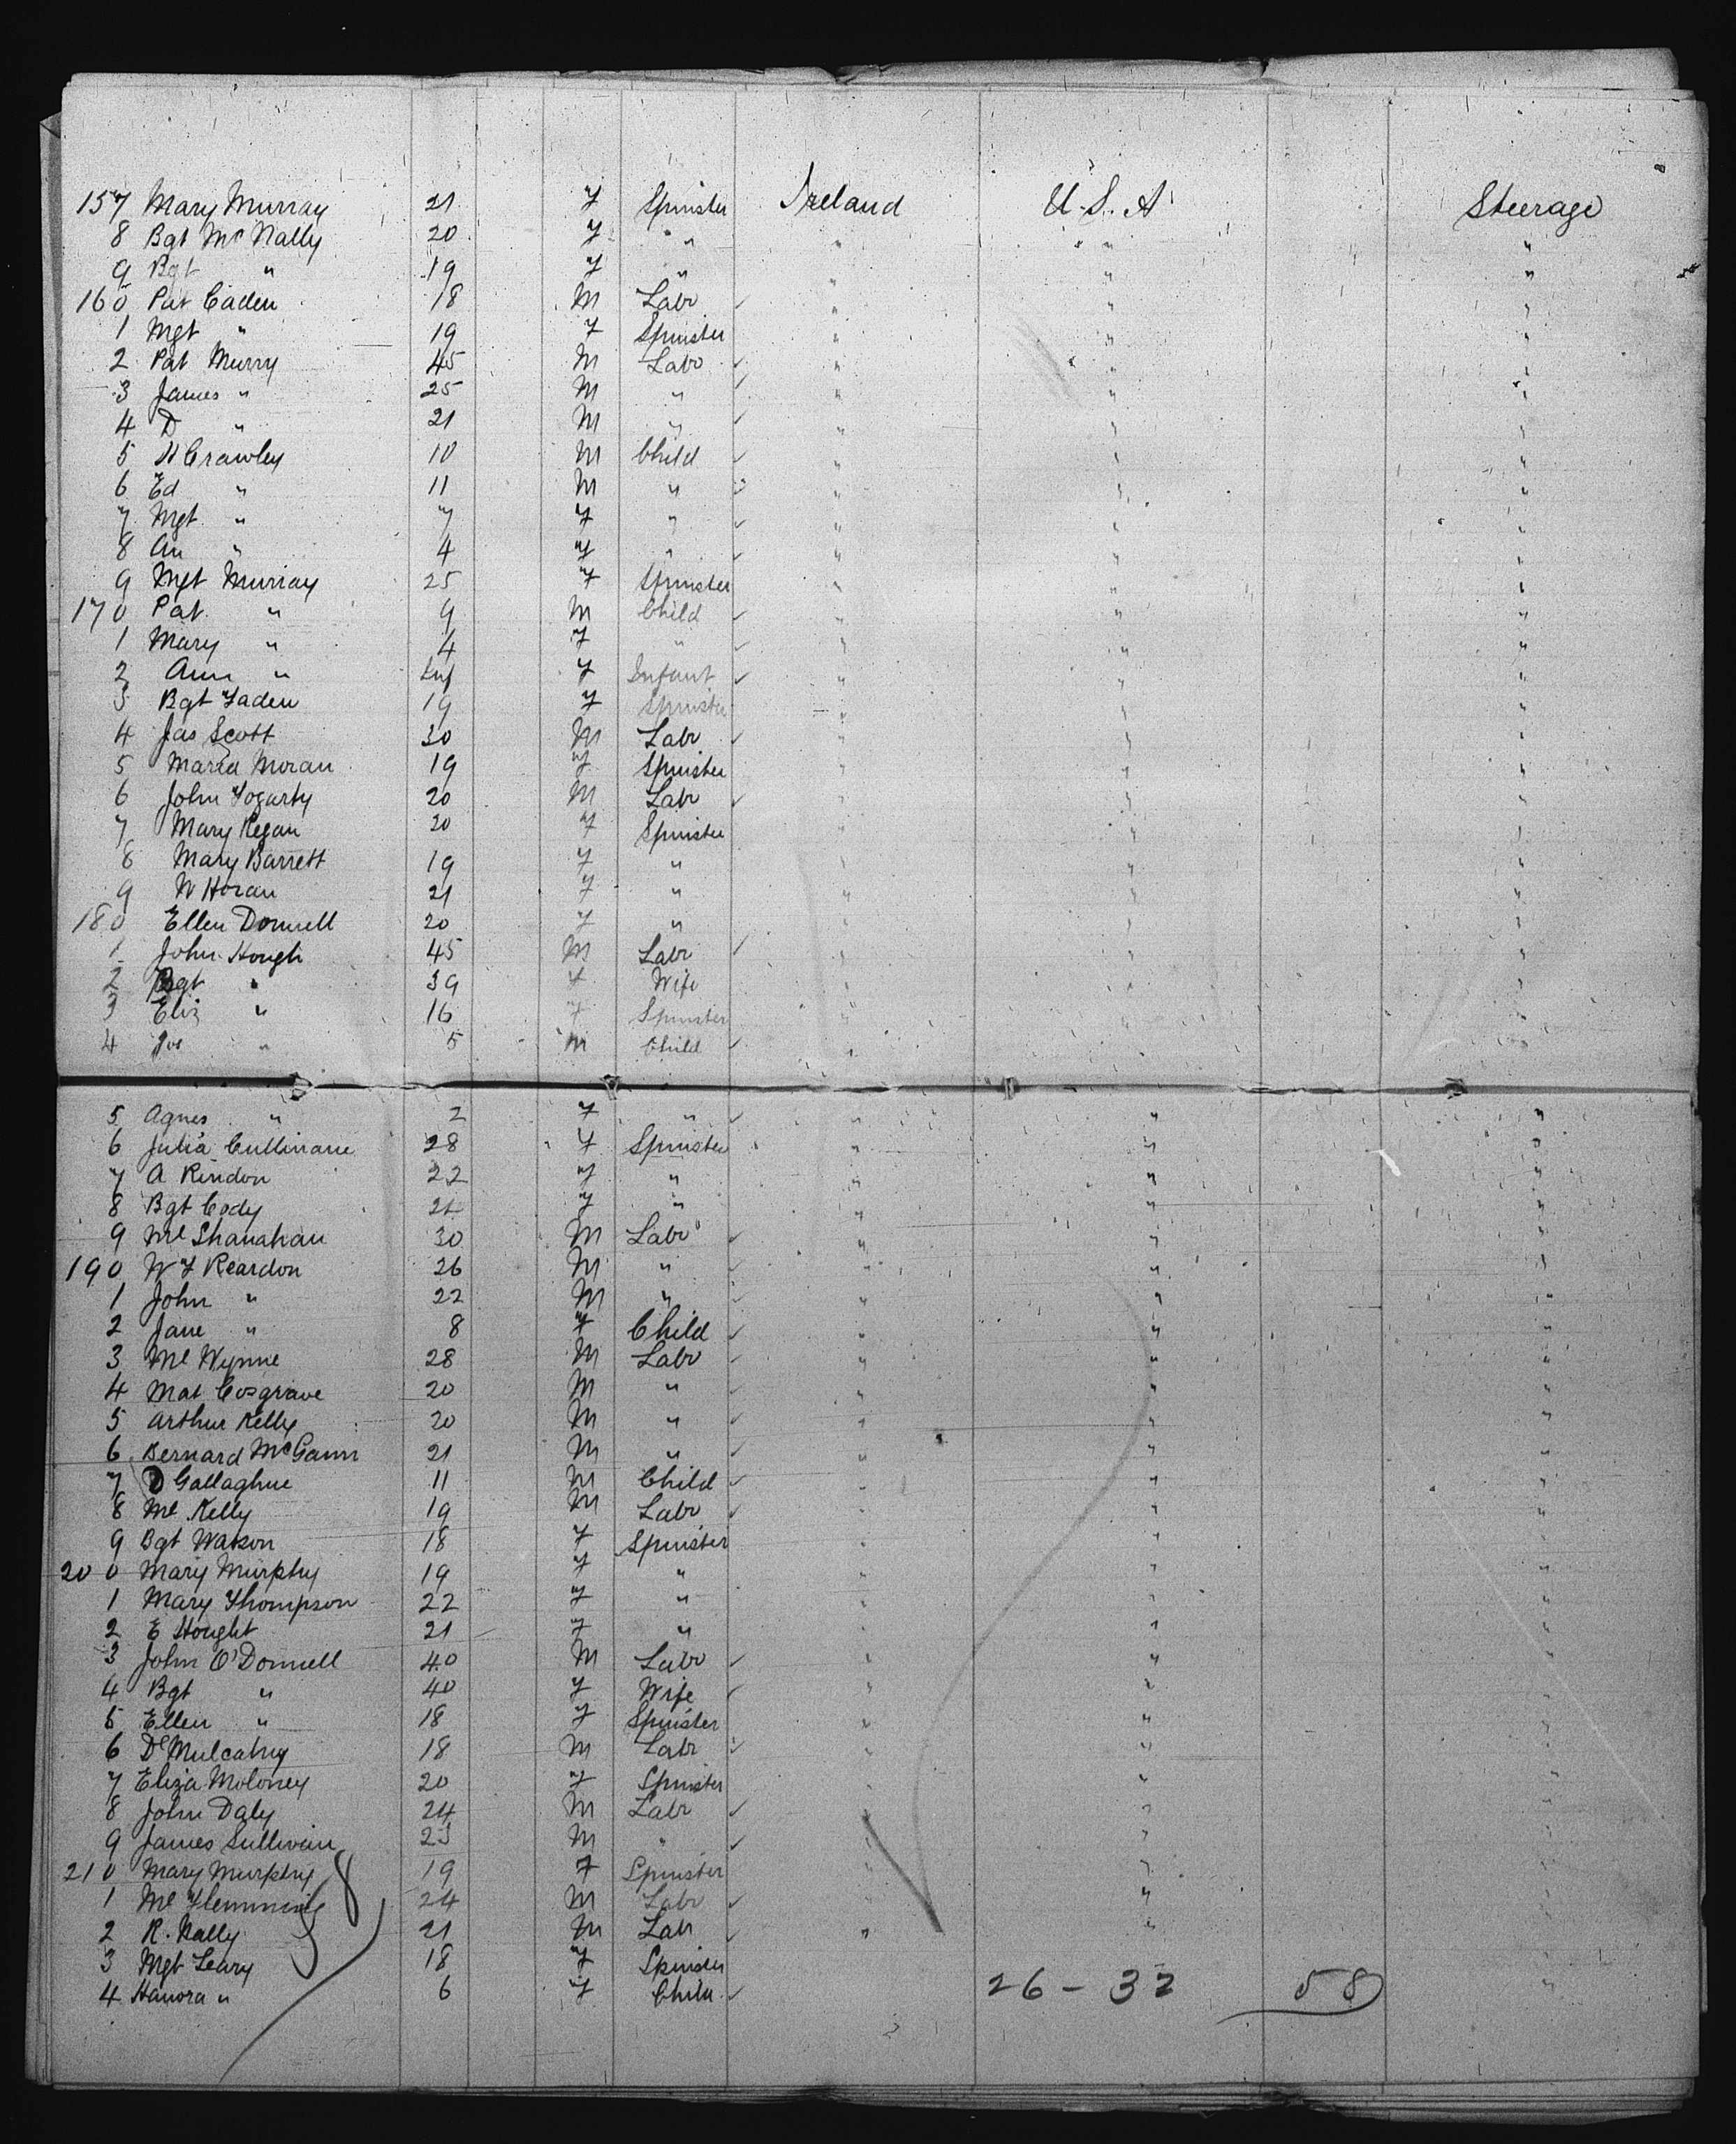 157 Mary Murray 21 F Spinster Ireland U.S.A Steerage
8 Bgt McNally 20 F " " " "
9 Bgt " 19 F " " " "
160 Pat Caden 18 M Labr " " "
1 Mgt " 19 F Spinster " " "
2 Pat Murry 45 M Labr " " "
3 James " 25 M " " " "
4 D " 21 M " " " "
5 H Crawley 10 M Child " " "
6 Ed " 11 M " " " "
7 Mgt " 7 F " " " "
8 An " 4 F " " " "
9 Mgt Murray 25 F Spinster " " "
170 Pat " 9 M Child " " "
1 Mary " 4 F " " " "
2 Ann " Inf F Infant " " "
3 Bgt Faden 19 F Spinster " " "
4 Jas Scott 30 M Labr " " "
5 Maria Moran 19 F Spinster " " "
6 John Fogarty 20 M Labr " " "
7 Mary Regan 20 F Spinster " " "
8 Mary Barrett 19 F " " " "
9 W Horan 21 F " " " "
180 Ellen Donnell 20 F " " " "
1 John Hough 45 M Labr " " "
2 Bgt " 39 F Wife " " "
3 Eliz " 16 F Spinster " " "
4 Jos " 5 M Child " " "
5 Agnes " 2 F " " " "
6 Julia Cullinane 28 F Spinster " " "
7 A Rindon 22 F " " " "
8 Bgt Cody 21 F " " " "
9 Ml Shanahan 30 M Labr " " "
190 W F Reardon 26 M " " " "
1 John " 22 M " " " "
2 Jane " 8 F Child " " "
3 Ml Wynne 28 M Labr " " "
4 Mat Cosgrave 20 M " " " "
5 Arthur Kelly 20 M " " " "
6 Bernard McGann 21 M " " " "
7 D Gallaghue 11 M Child " " "
8 Ml Kelly 19 M Labr " " "
9 Bgt Watson 18 F Spinster " " "
200 Mary Murphy 19 F " " " "
1 Mary Thompson 22 F " " " "
2 E Hought 21 F " " " "
3 John O'Donnell 40 M Labr " " "
4 Bgt " 40 F Wife " " "
5 Ellen " 18 F Spinster " " "
6 Dl Mulcahy 18 M Labr " " "
7 Eliza Moloney 20 F Spinster " " "
8 John Daly 24 M Labr " " "
9 James Sullivan 23 M " " " "
210 Mary Murphy 19 F Spinster " " "
1 Ml Flemming 24 M Labr " " "
2 R. Nally 21 M Labr " " "
3 Mgt Leary 18 F Spinster
4 Hanora " 6 F Child 26 - 32 58 "